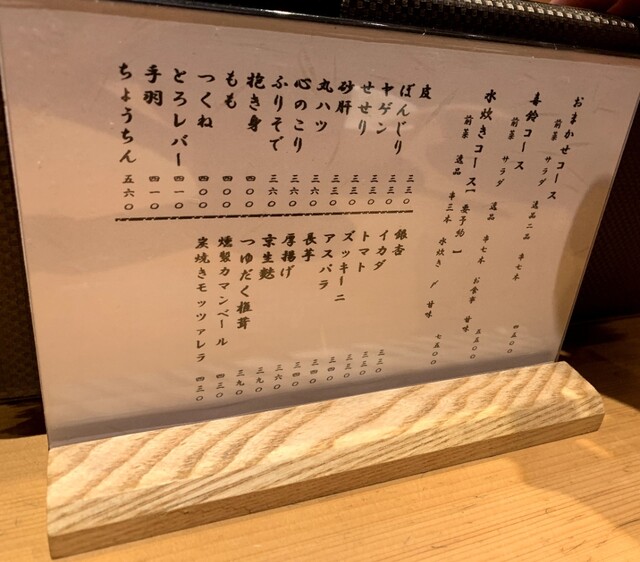 おまかせコース
前菜 サラダ 逸品二品 串七本 四五〇〇
喜鈴コース
前菜 サラダ 逸品 串七本 お食事 甘味 五五〇〇
水炊きコース【要予約】
前菜 逸品 串三本 水炊き 〆 甘味 七五〇〇
皮 三三〇
ぼんじり 三三〇
ヤゲン 三三〇
せせり 三三〇
砂肝 三三〇
丸ハツ 三六〇
心のこり 三六〇
ふりそで 三六〇
抱き身 四〇〇
もも 四〇〇
つくね 四〇〇
とろレバー 四一〇
手羽 四一〇
ちょうちん 五六〇
銀杏 三三〇
イカダ 三三〇
トマト 三三〇
ズッキーニ 三四〇
アスパラ 三四〇
長芋 三四〇
厚揚げ 三六〇
京生麩 三九〇
つゆだく椎茸 三九〇
燻製カマンベール 四三〇
炭焼きモッツァレラ 四三〇